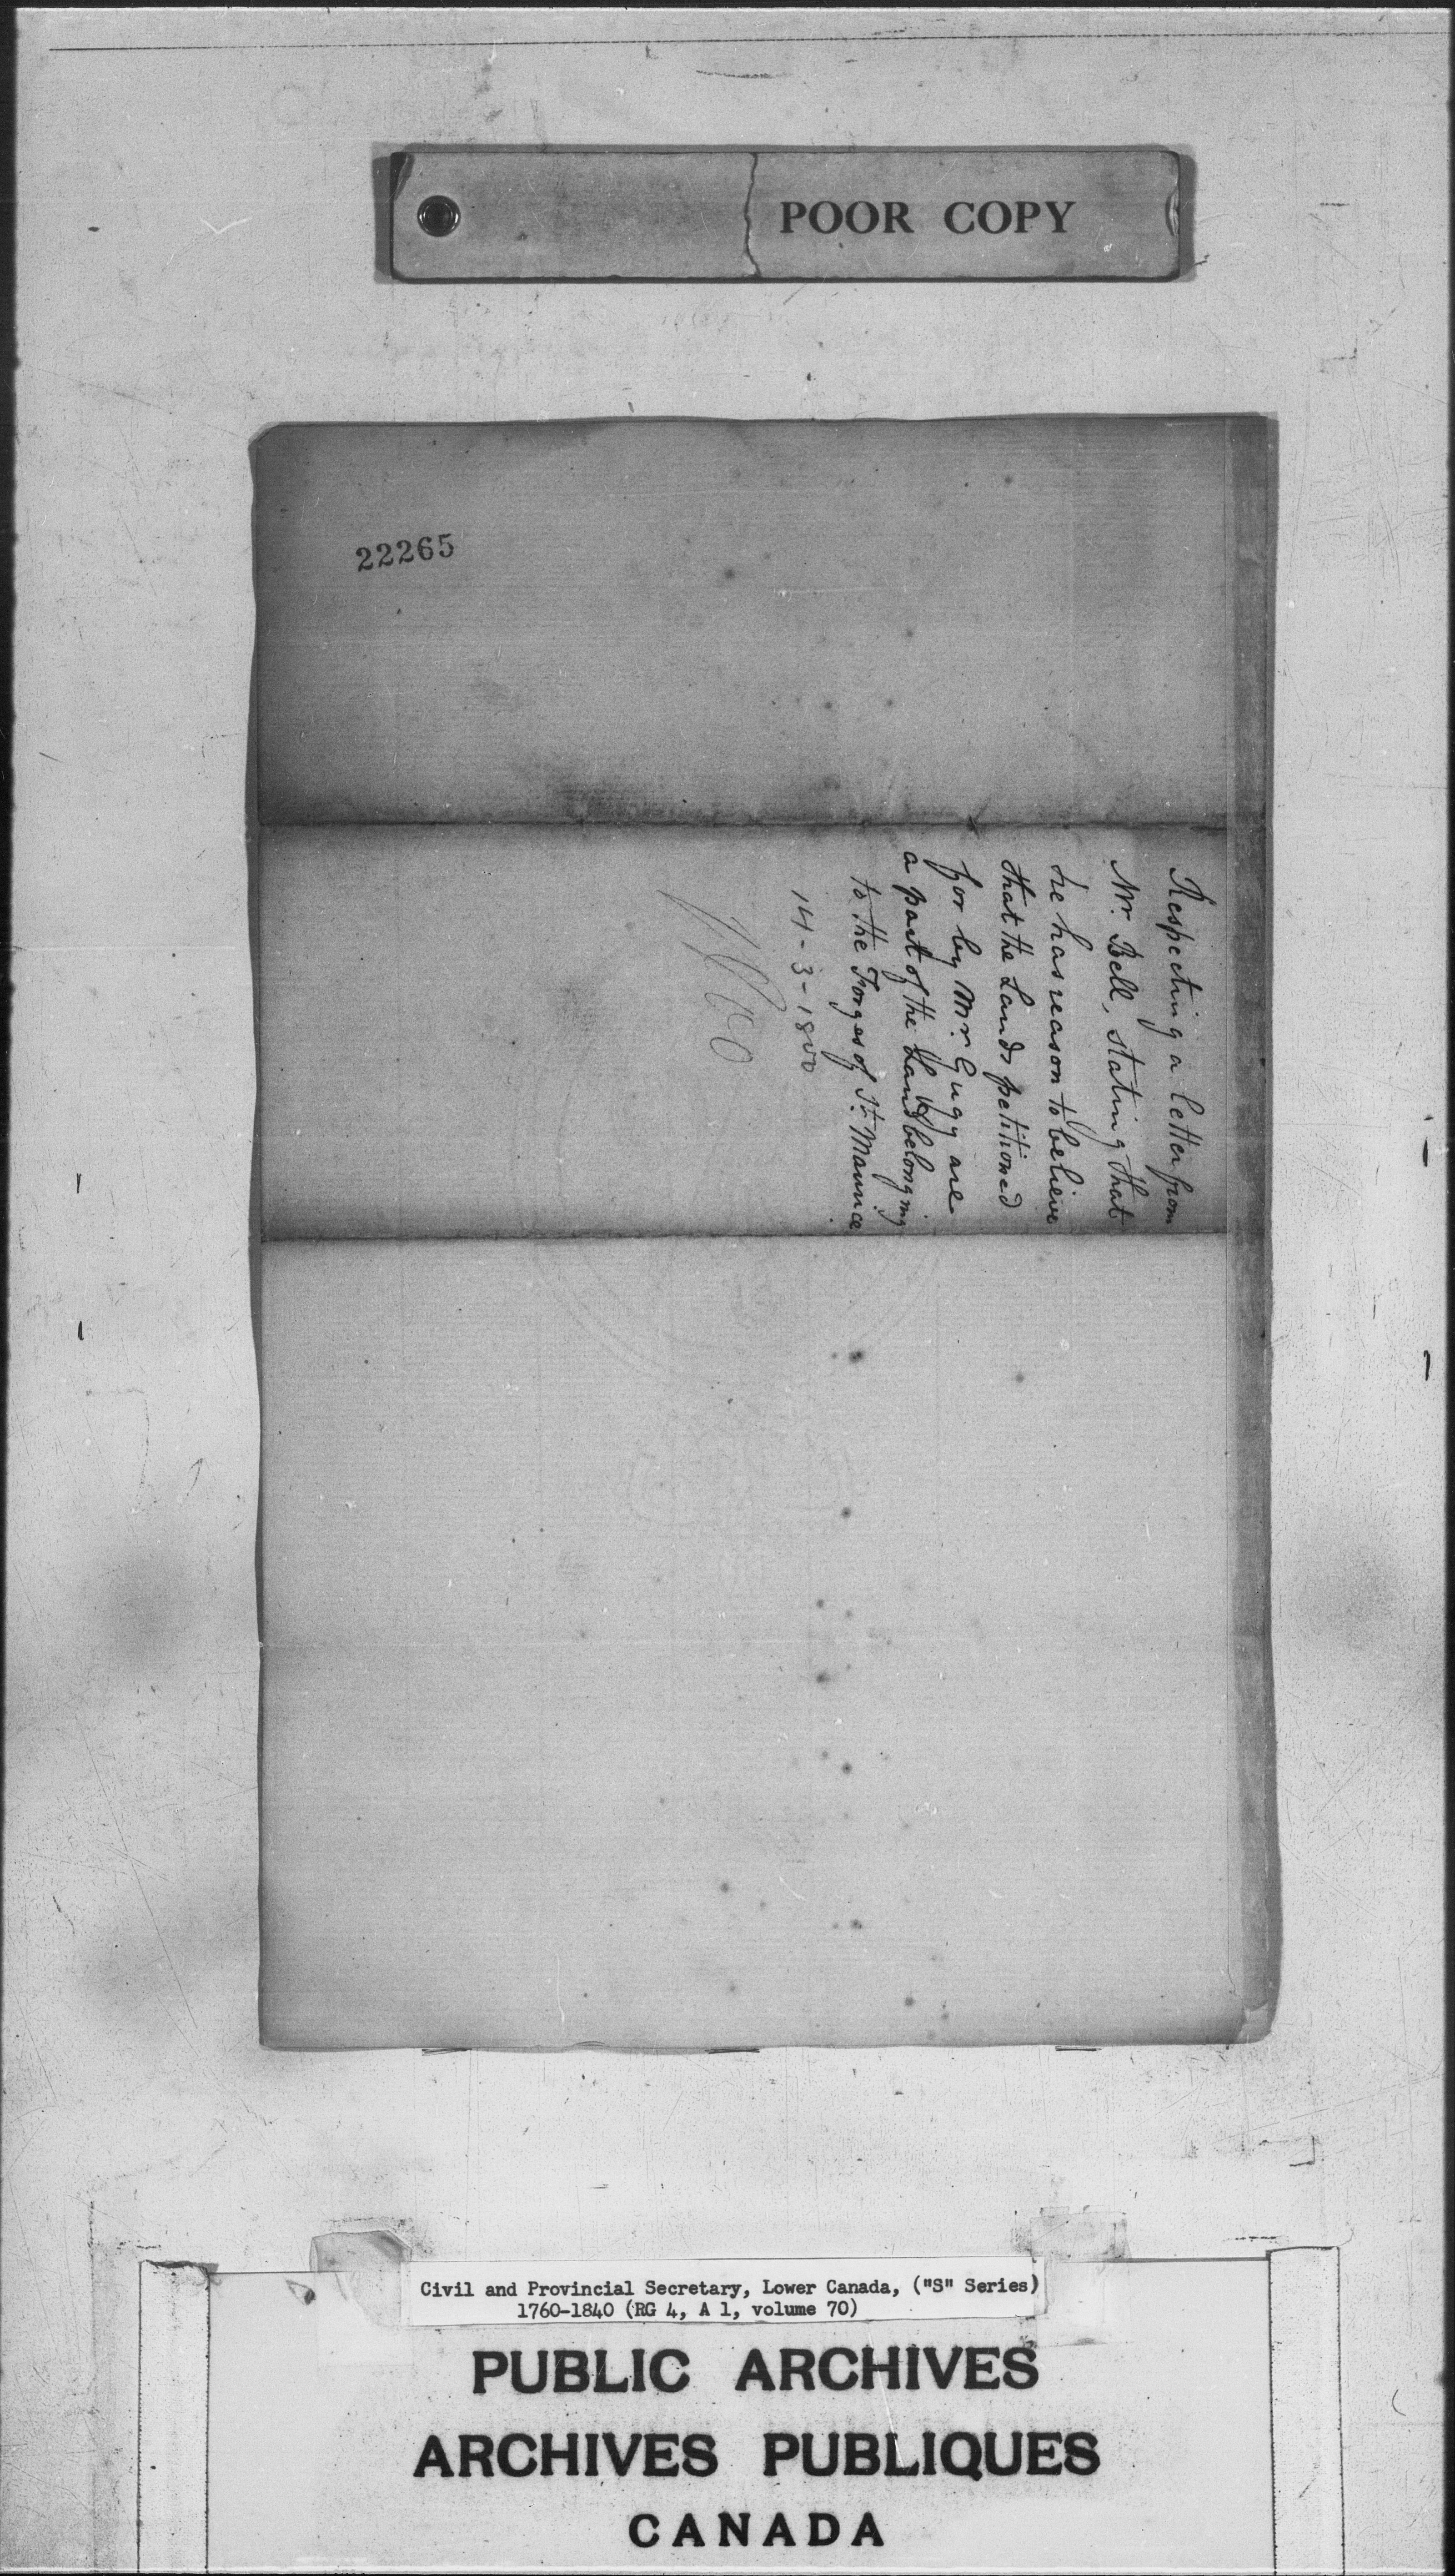 POOR COPY
22265
Respecting a letter from
Mr. Bell, stating that
he has reason to believe
that the Lands petitioned
for by Mr. Gugy are
a part of the Lands belonging
to the Forges of St. Maurice
14-3-1800
Civil and Provincial Secretary, Lower Canada, ("S" Series)
1760-1840 (RG 4, A 1, volume 70)
PUBLIC ARCHIVES
ARCHIVES PUBLIQUES
CANADA